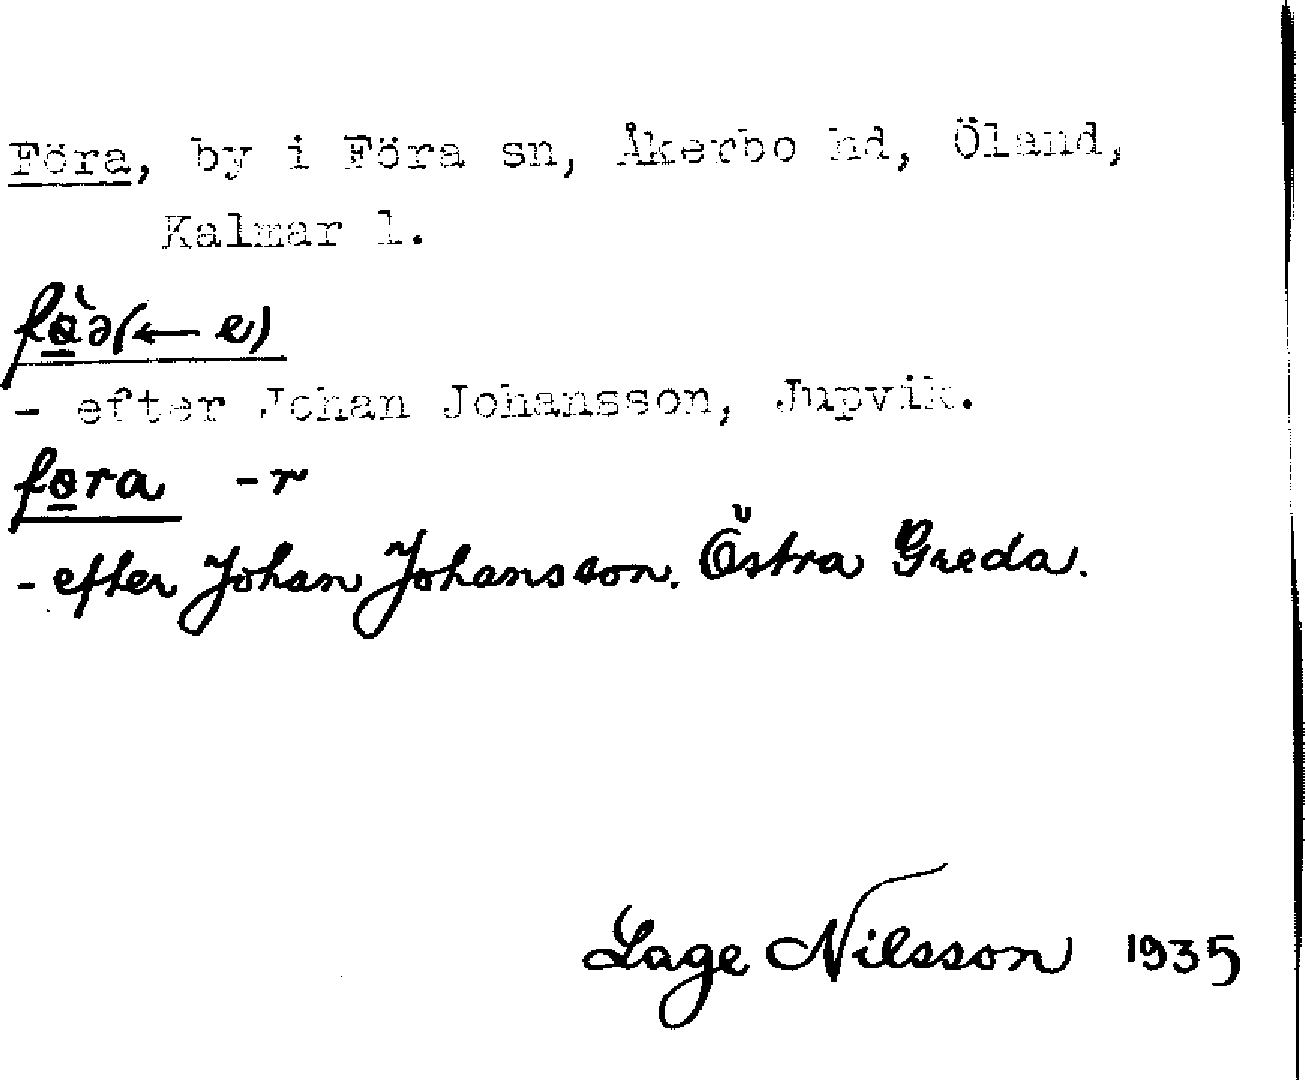 Föra, by i Föra sn, Åkerbo hd, Öland,
Kalmar l.
fö̀ə(← e)
- efter Johan Johansson, Jupvik.
föra -r
- efter Johan Johansson. Östra Greda.
Lage Nilsson 1935